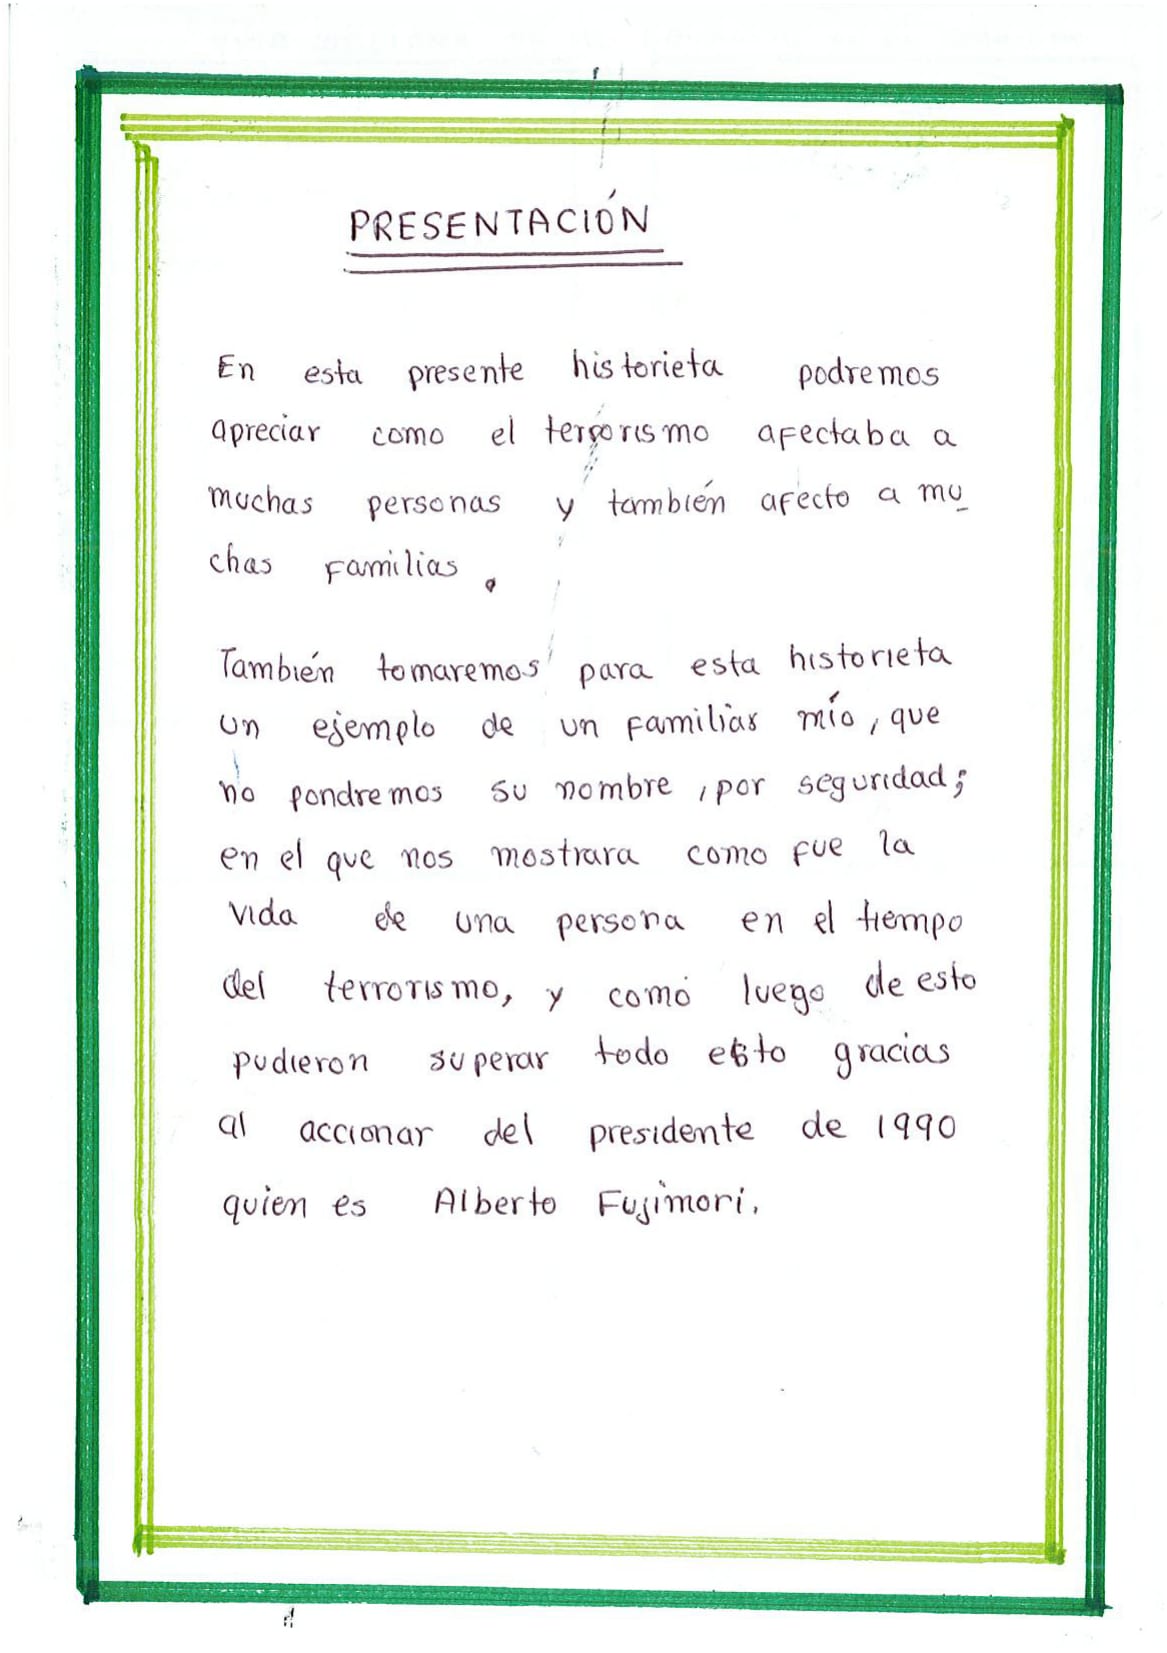 PRESENTACIÓN
En esta presente historieta podremos
apreciar como el terrorismo afectaba a
muchas personas y también afecto a mu
chas familias.
También tomaremos para esta historieta
un ejemplo de un familias mío, que
no pondremos su nombre, por seguridad;
en el que nos mostrara como fue la
vida de una persona en el tiempo
del terrorismo, y como luego de esto
pudieron superar todo esto gracias
al accionar del presidente de 1990
quien es Alberto Fujimori.